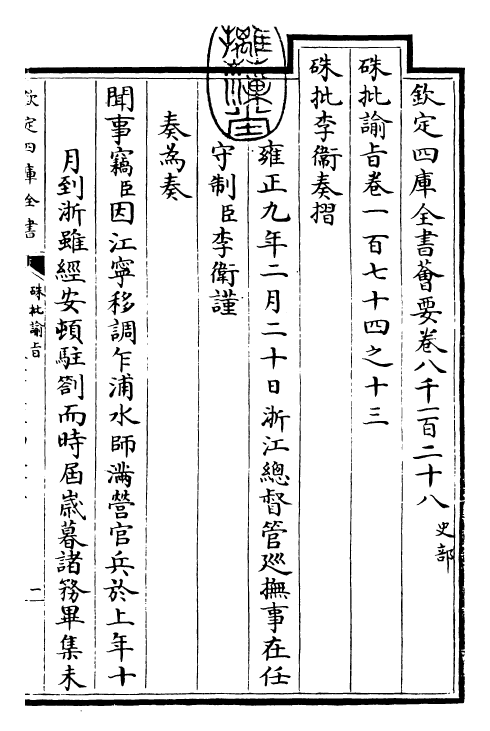 欽定四庫全書薈要卷八千一百二十八 史部
硃批諭旨卷一百七十四之十三
硃批李衛奏摺
雍正九年二月二十日浙江總督管廵撫事在任
守制臣李衛謹
奏為奏
聞事竊臣因江寧移調乍浦水師滿營官兵於上年十
月到浙雖經安頓駐劄而時屆歲暮諸務畢集未
欽定四庫全書
硃批諭旨